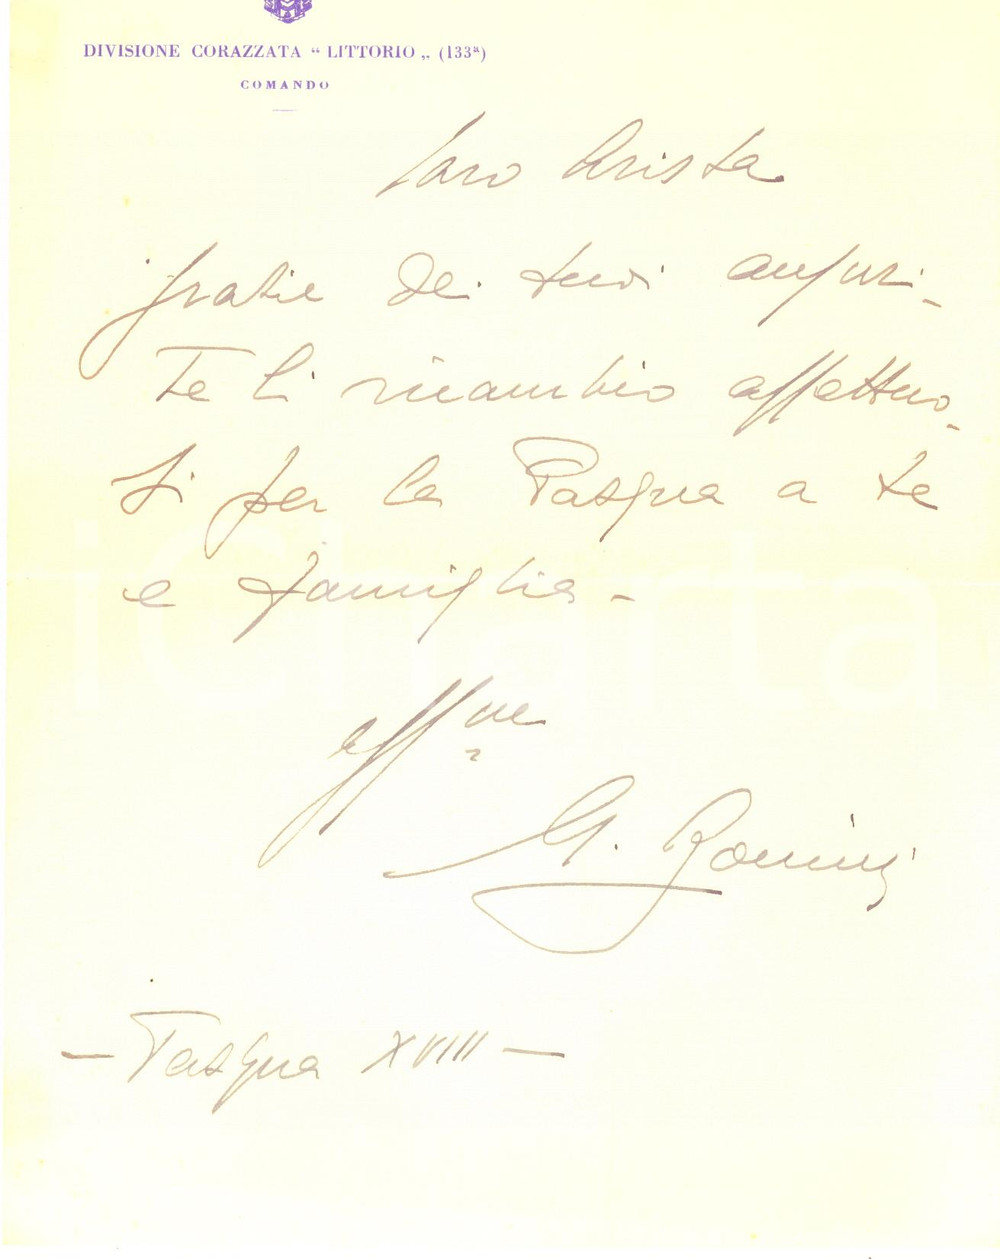 DIVISIONE CORAZZATA “ LITTORIO „ (133ª)
COMANDO
Caro Crista
grazie dei tuoi auguri.
Te li ricambio affettuo-
si per la Pasqua a te
e famiglia -
aff.mo
G. Bonini
— Pasqua XVIII —
iCharta